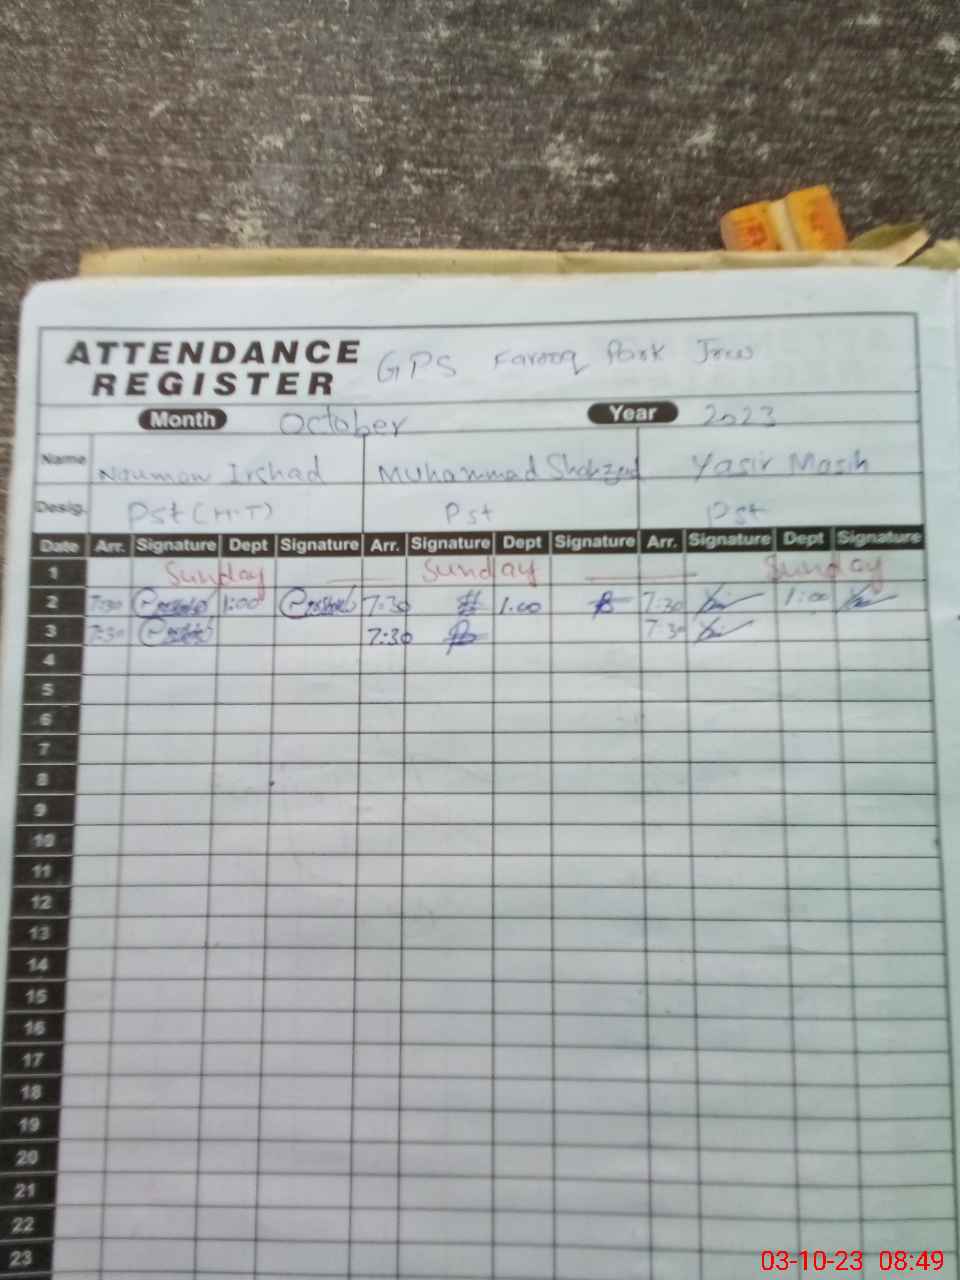 ATTENDANCE REGISTER GPS Farooq Park
Month October Year 2023
Name Nouman Irshad Muhammad Shahzad Yasir Masih
Desig. Pst (H.T) Pst Pst
Date Arr. Signature Dept Signature Arr. Signature Dept Signature Arr. Signature Dept Signature
1 Sunday Sunday Sunday
2 7:30 1:00 7:30 1:00 7:30 1:00
3 7:30 7:30 7:30
4
5
6
7
8
9
10
11
12
13
14
15
16
17
18
19
20
21
22
23
03-10-23 08:49